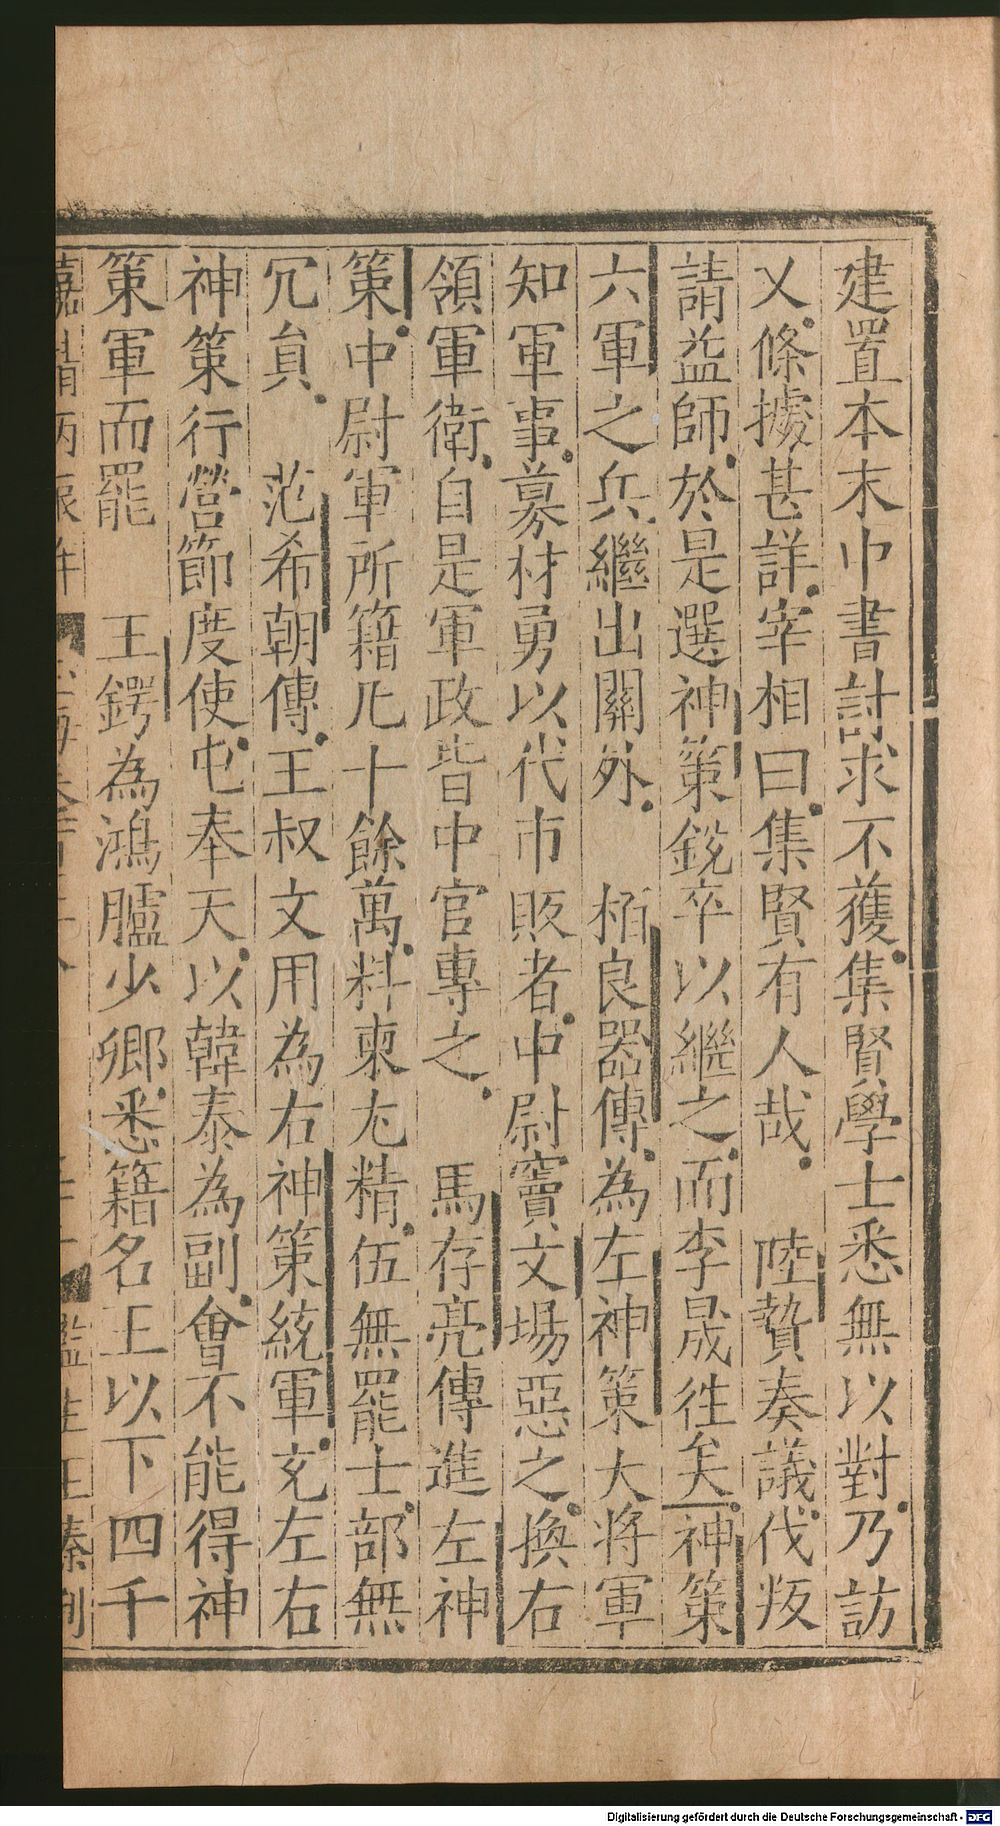 建置本末中書討求不獲集賢學士悉無以對乃訪
乂條據甚詳宰相曰集賢有人哉　陸贄奏議伐叛
請益師於是選神策銳卒以繼之而李晟徃矣神策
六軍之兵繼出關外　栢良器傳為左神策大將軍
知軍事募材勇以代市販者中尉竇文場惡之換右
領軍衛自是軍政皆中官專之　馬存亮傳進左神
策中尉軍所籍凡十餘萬料柬尤精伍無罷士部無
冗員　范希朝傳王叔文用為右神策統軍充左右
神策行營節度使屯奉天以韓泰為副會不能得神
策軍而罷　王鍔為鴻臚少卿悉籍名王以下四千
嘉靖丙辰年
監生王榛刊
Digitalisierung gefördert durch die Deutsche Forschungsgemeinschaft - DFG